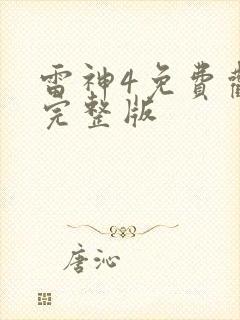 雷神4免費
完整版
唐沁